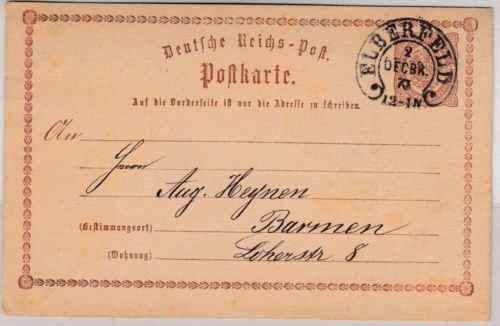 Deutsche Reichs-Post.
Postkarte.
ELBERFELD
2
DECBR.
73
12-1N
Auf die Vorderseite ist nur die Adresse zu schreiben.
An
Herrn
Aug. Heynen
(Bestimmungsort) Barmen
(Wohnung) Loherstr 8